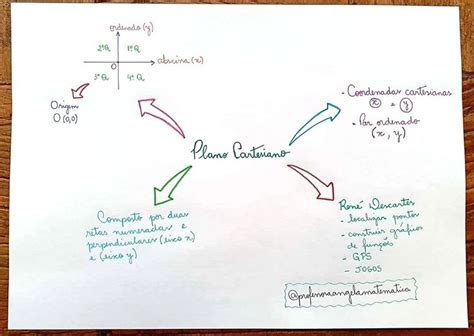 ordenada (y)
2º Q. 1º Q.
O
abscissa (x)
3º Q. 4º Q.
Origem
O (0,0)
Plano Cartesiano
• Coordenadas cartesianas
x e y
• Par ordenado
(x, y)
Composto por duas
retas numeradas e
perpendiculares (eixo x)
e (eixo y)
René Descartes
- localizar pontos
- construir gráfico
de funções
- GPS
- JOGOS
@professoraangelamatematica